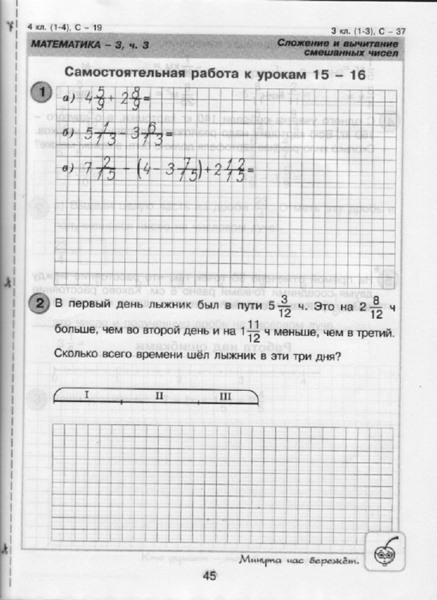 4 кл. (1-4), С – 19
3 кл. (1-3), С – 37
МАТЕМАТИКА – 3, ч. 3
Сложение и вычитание смешанных чисел
Самостоятельная работа к урокам 15 – 16
1
а) 4 5/9 + 2 8/9 =
б) 5 1/13 - 3 6/13 =
в) 7 2/15 - (4 - 3 7/15) + 2 12/15 =
2 В первый день лыжник был в пути 5 3/12 ч. Это на 2 8/12 ч
больше, чем во второй день и на 1 11/12 ч меньше, чем в третий.
Сколько всего времени шёл лыжник в эти три дня?
I II III
Минута час бережёт.
45